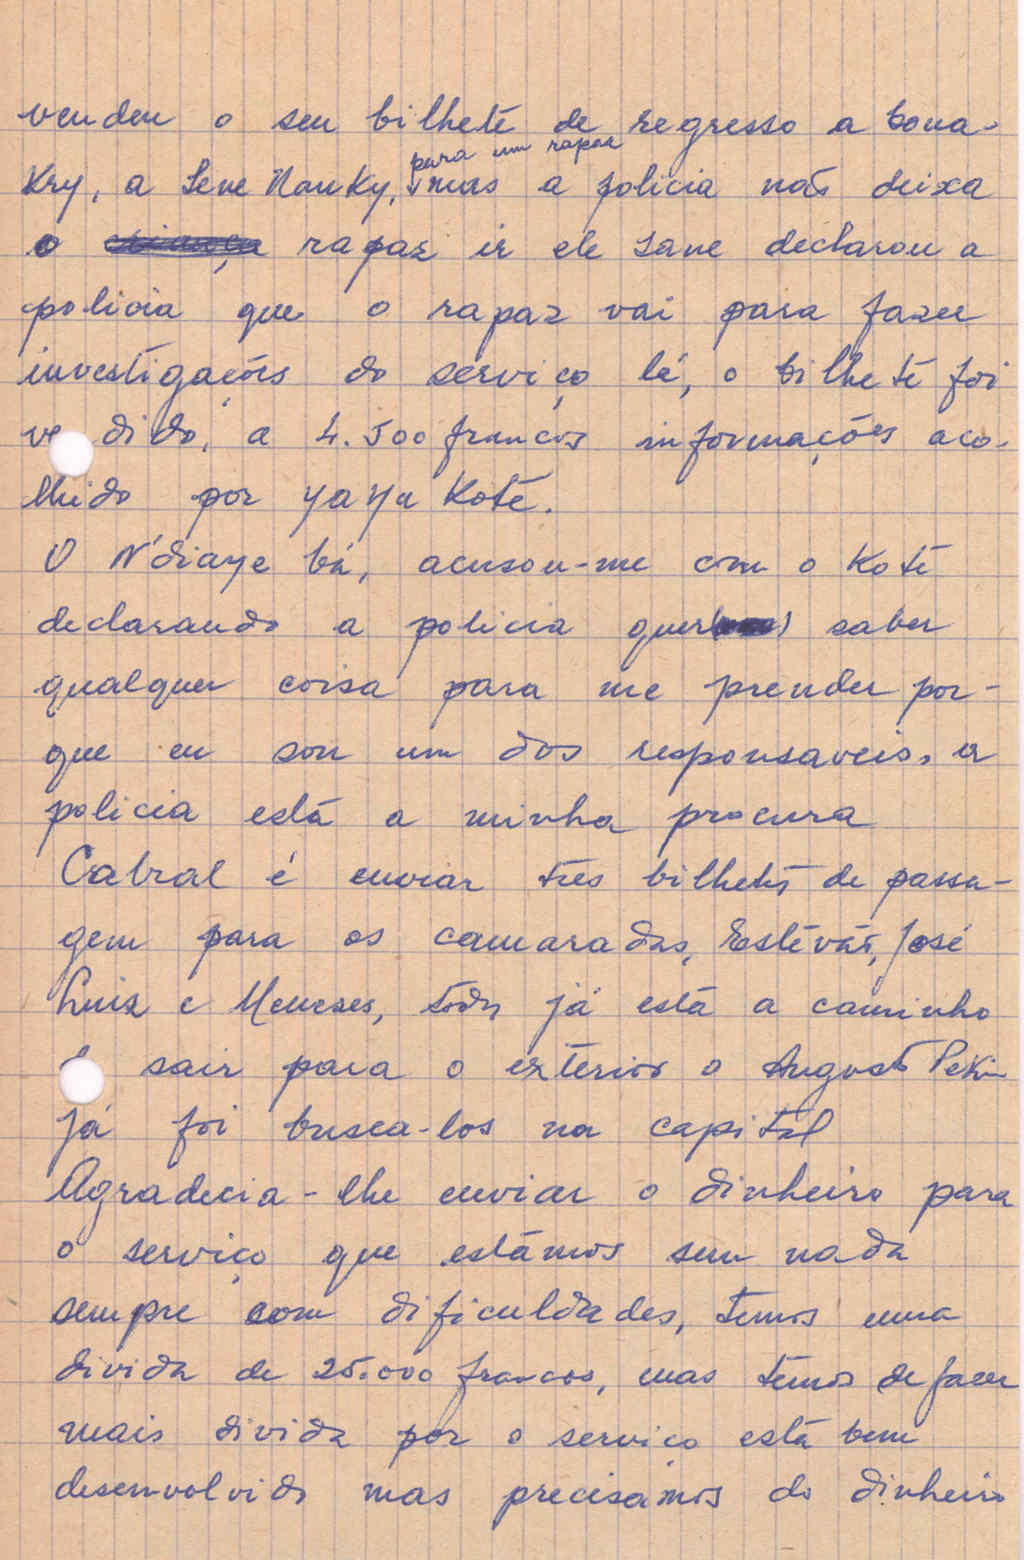 vendeu o seu bilhete de regresso a Cona-
para um rapaz
Kry, a Sene Nanky, mas a policia não deixa
o rapaz ir ele Sane declarou a
policia que o rapaz vai para fazer
investigações do serviço lá, o bilhete foi
ve dido, a 4.500 francos informações aco-
lhido por yaya Koté.
O N'diaye bá, acusou-me com o Koté
declarando a policia quer saber
qualquer coisa para me prender por-
que eu sou um dos responsaveis. a
policia está a minha procura
Cabral é enviar três bilhetes de passa-
gem para os camaradas, Estêvão, José
Luiz e Meneses, todos já está a caminho
sair para o exterior o Augusto Pekin
já foi busca-los na capital
Agradecia-lhe enviar o dinheiro para
o serviço que estámos sem nada
sempre com dificuldades, temos uma
divida de 25.000 francos, mas temos de fazer
mais divida por o serviço está bem
desenvolvido mas precisámos do dinheiro